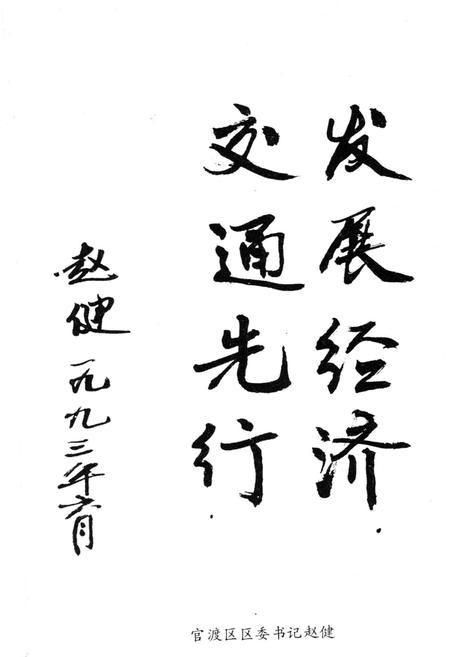 发展经济
交通先行
赵健
一九九三年六月
官渡区区委书记赵健